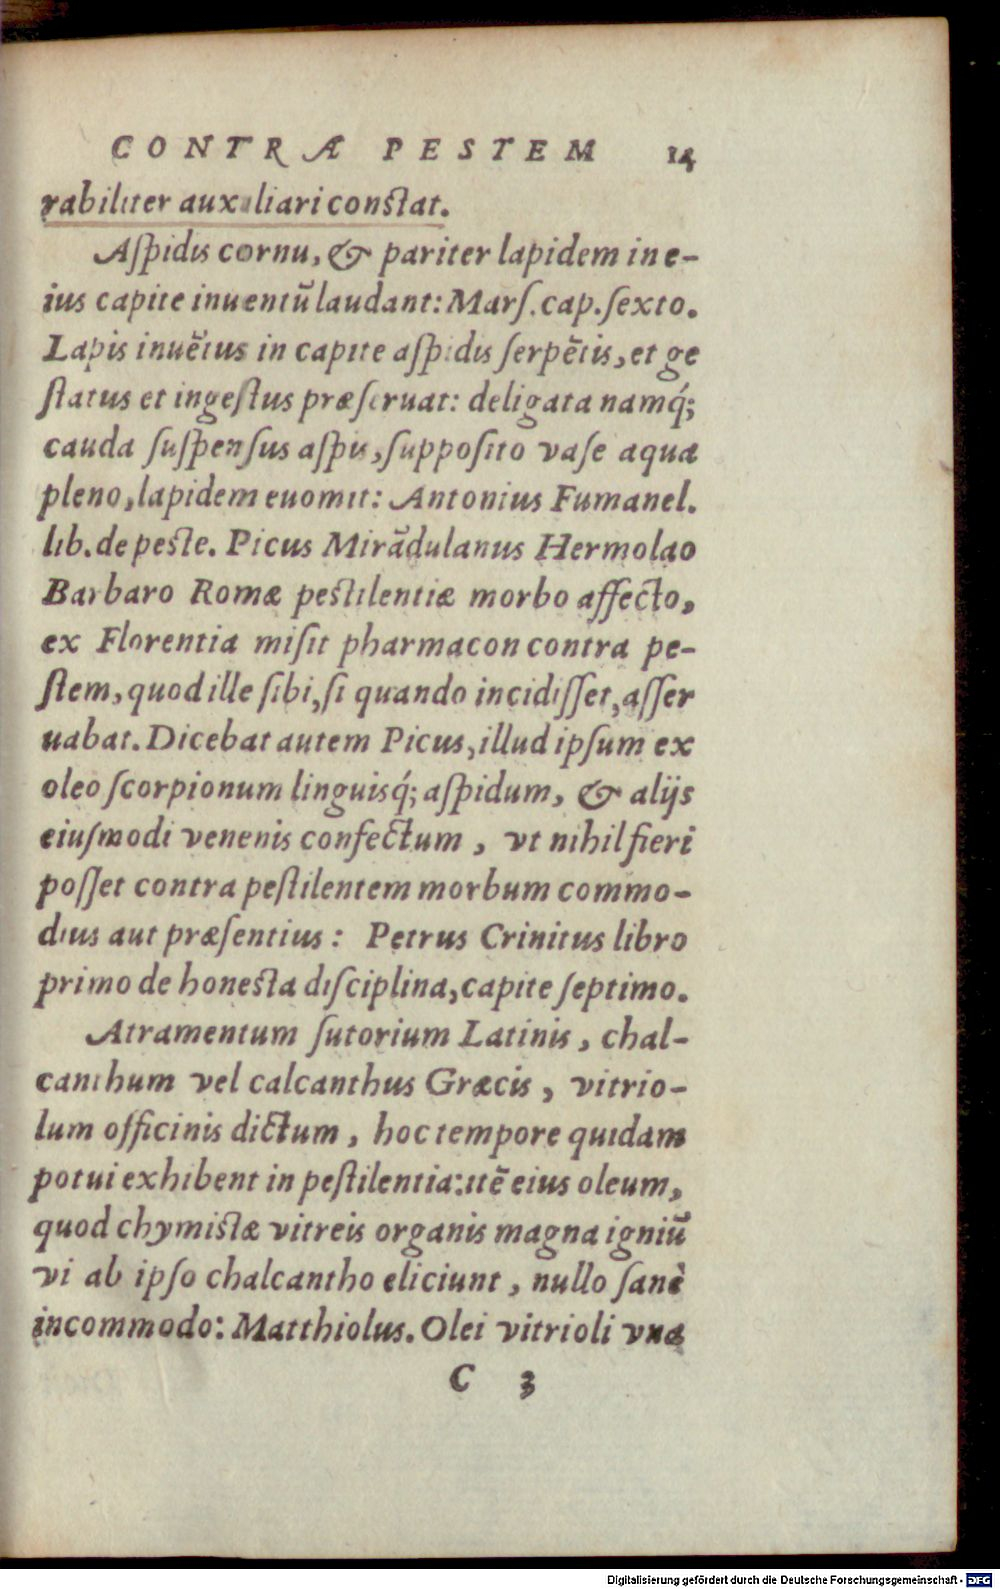 CONTRA PESTEM 14
rabiliter auxiliari constat.
Aſpidis cornu, & pariter lapidem in e-
ius capite inuentū laudant: Marſ. cap. ſexto.
Lapis inuētus in capite aſpidis ſerpētis, et ge
ſtatus et ingeſtus præſeruat: deligata namq́;
cauda ſuſpenſus aſpis, ſuppoſito vaſe aqua
pleno, lapidem euomit: Antonius Fumanel.
lib. de peste. Picus Mirādulanus Hermolao
Barbaro Romæ peſtilentiæ morbo affecto,
ex Florentia miſit pharmacon contra pe-
ſtem, quod ille ſibi, ſi quando incidiſſet, aſſer
uabat. Dicebat autem Picus, illud ipſum ex
oleo ſcorpionum linguisq́; aſpidum, & alijs
eiuſmodi venenis confectum, vt nihil fieri
poſſet contra peſtilentem morbum commo-
dius aut præſentius: Petrus Crinitus libro
primo de honeſta diſciplina, capite ſeptimo.
Atramentum ſutorium Latinis, chal-
canthum vel calcanthus Græcis, vitrio-
lum officinis dictum, hoc tempore quidam
potui exhibent in peſtilentia: itē eius oleum,
quod chymiſtæ vitreis organis magna igniū
vi ab ipſo chalcantho eliciunt, nullo ſanè
incommodo: Matthiolus. Olei vitrioli vna
C 3
Digitalisierung gefördert durch die Deutsche Forschungsgemeinschaft - DFG